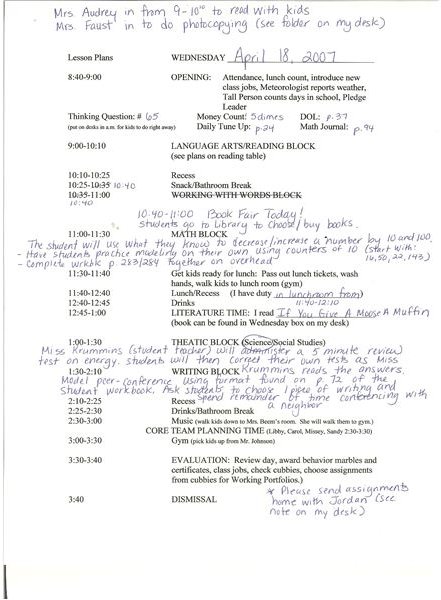 Mrs Audrey in from 9-10:00 to read with kids
Mrs. Faust in to do photocopying (see folder on my desk)
Lesson Plans WEDNESDAY April 18, 2007
8:40-9:00 OPENING: Attendance, lunch count, introduce new
class jobs, Meteorologist reports weather,
Tall Person counts days in school, Pledge
Leader
Thinking Question: # 65 Money Count: 5 dimes DOL: p.37
(put on desks in a.m. for kids to do right away) Daily Tune Up: p.24 Math Journal: p.94
9:00-10:10 LANGUAGE ARTS/READING BLOCK
(see plans on reading table)
10:10-10:25 Recess
10:25-10:35 10:40 Snack/Bathroom Break
10:35-11:00 WORKING WITH WORDS BLOCK
10:40
10:40-11:00 Book Fair Today!
Students go to Library to choose/buy books.
11:00-11:30 MATH BLOCK
The student will use what they know to decrease/increase a number by 10 and 100.
- Have students practice modeling on their own using counters of 10 (start with:
16, 50, 22, 143)
- Complete wrkbk p. 283/284 together on overhead
11:30-11:40 Get kids ready for lunch: Pass out lunch tickets, wash
hands, walk kids to lunch room (gym)
11:40-12:40 Lunch/Recess (I have duty in lunchroom from)
11:40-12:10
12:40-12:45 Drinks
12:45-1:00 LITERATURE TIME: I read If You Give A Moose A Muffin
(book can be found in Wednesday box on my desk)
1:00-1:30 THEATIC BLOCK (Science/Social Studies)
Miss Krummins (student teacher) will administer a 5 minute review
test on energy. Students will then correct their own tests as Miss
1:30-2:10 WRITING BLOCK Krummins reads the answers.
Model peer-conference using format found on p. 72 of the
student workbook. Ask students to choose 1 piece of writing and
2:10-2:25 Recess spend remainder of time conferencing with
a neighbor
2:25-2:30 Drinks/Bathroom Break
2:30-3:00 Music (walk kids down to Mrs. Beem's room. She will walk them to gym.)
CORE TEAM PLANNING TIME (Libby, Carol, Missey, Sandy 2:30-3:30)
3:00-3:30 Gym (pick kids up from Mr. Johnson)
3:30-3:40 EVALUATION: Review day, award behavior marbles and
certificates, class jobs, check cubbies, choose assignments
from cubbies for Working Portfolios.)
3:40 DISMISSAL
* Please send assignments
home with Jordan (see
note on my desk)